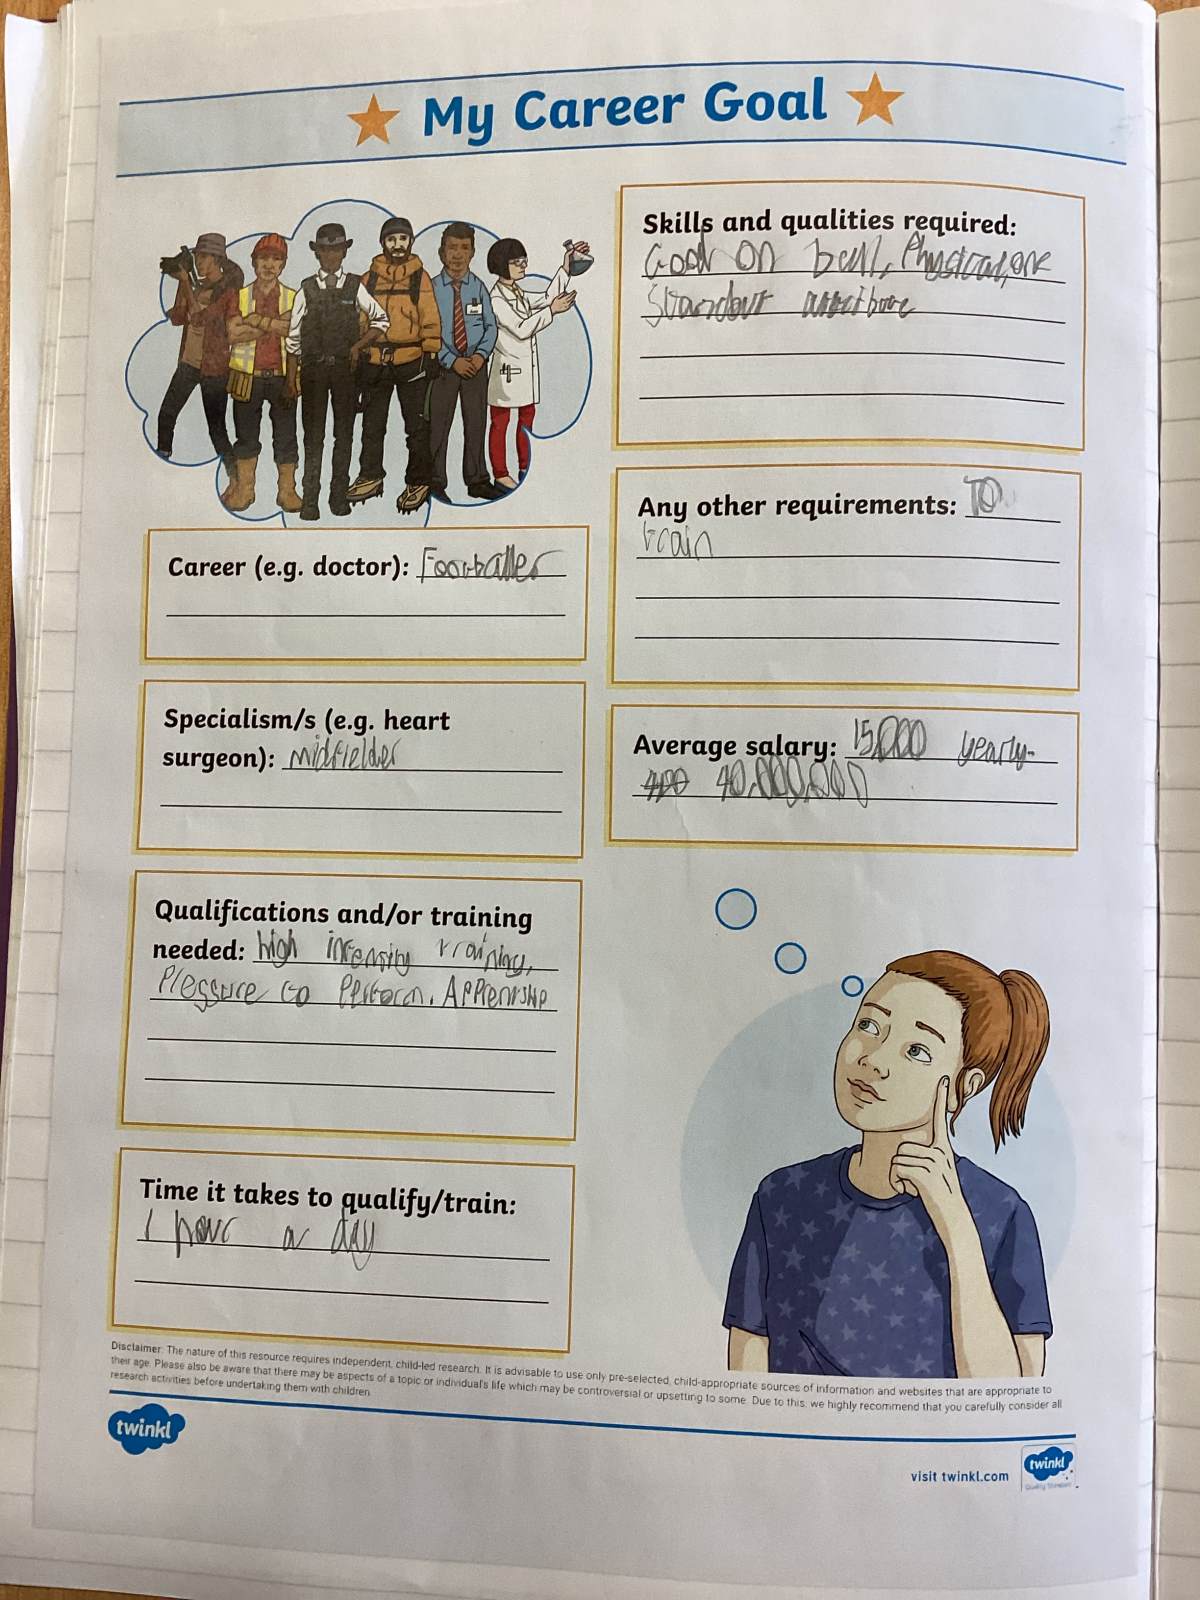 My Career Goal
Skills and qualities required:
Good on ball, Physical, one
Standout
Any other requirements: TO
train
Career (e.g. doctor): Footballer
Specialism/s (e.g. heart
surgeon): midfielder
Average salary: 15,000 yearly-
40,000,000
Qualifications and/or training
needed: high intensity training,
Plessure to Perform. APPrentship
Time it takes to qualify/train:
1 hour a day
Disclaimer: The nature of this resource requires independent, child-led research. It is advisable to use only pre-selected, child-appropriate sources of information and websites that are appropriate to
their age. Please also be aware that there may be aspects of a topic or individual's life which may be controversial or upsetting to some. Due to this, we highly recommend that you carefully consider all
research activities before undertaking them with children.
twinkl
visit twinkl.com
twinkl
Quality Standard